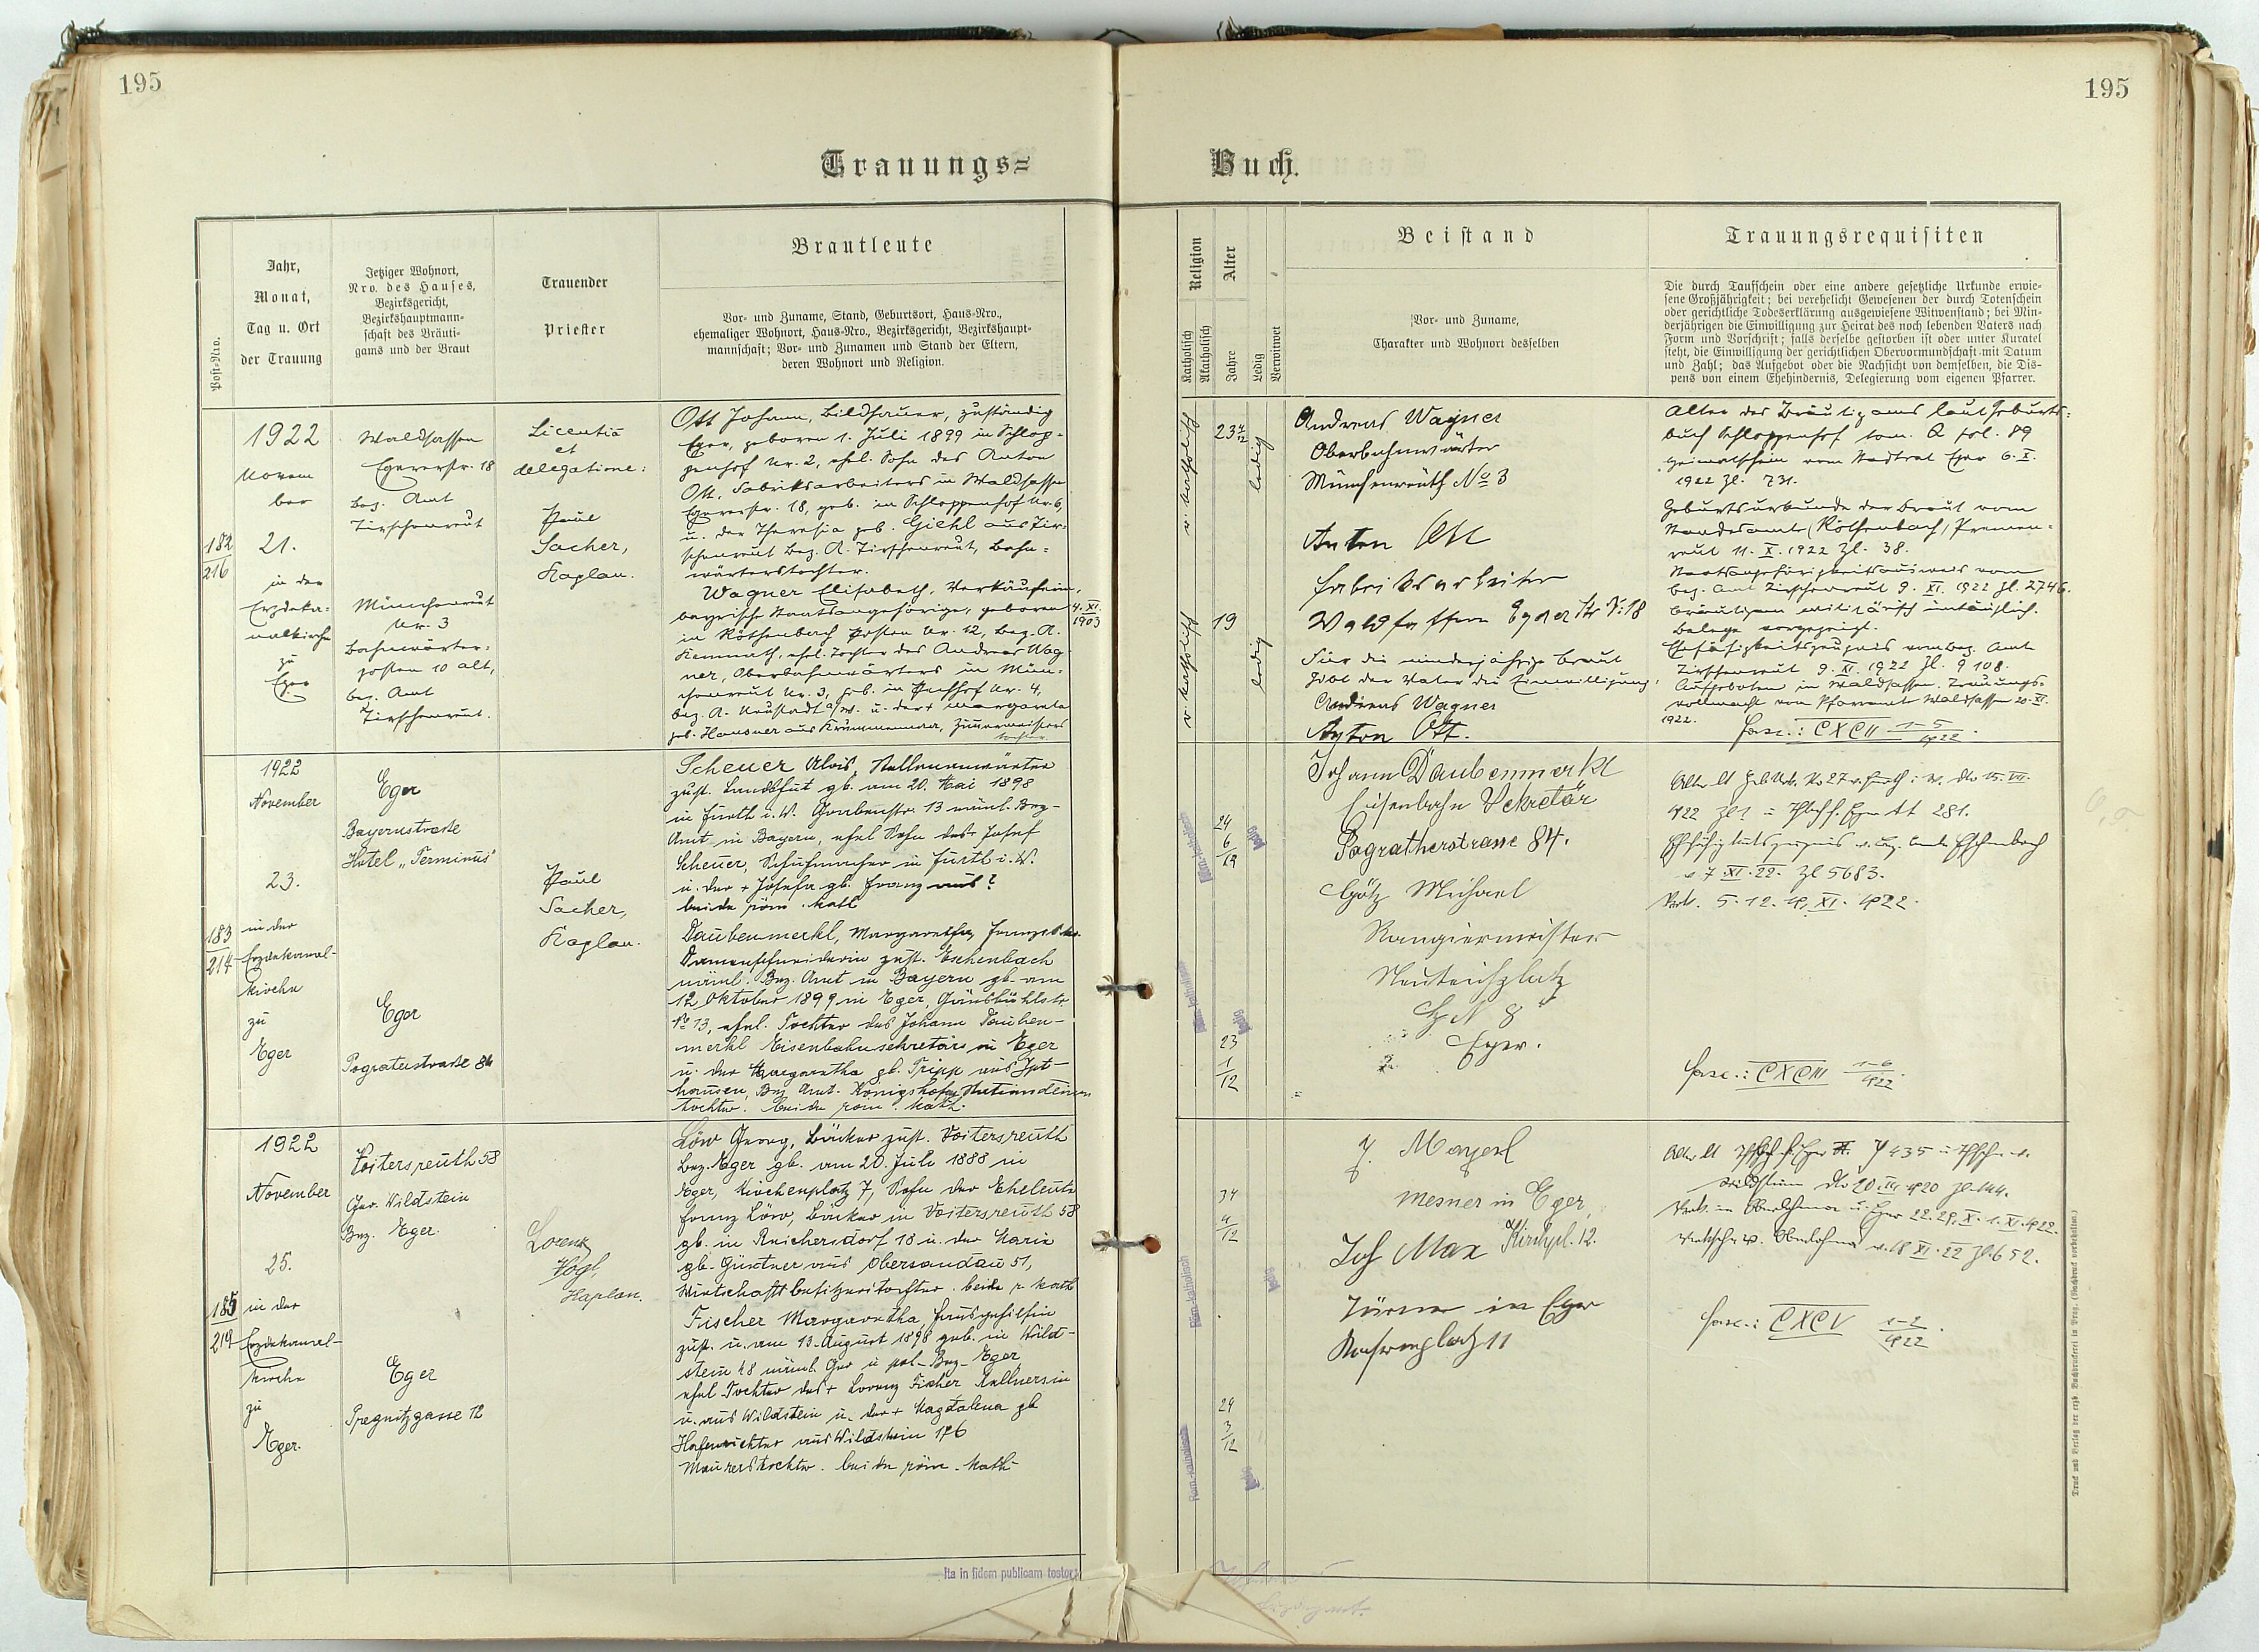 195
195
Trauungs=
Buch.
Post-Nro.
Jahr,
Monat,
Tag u. Ort
der Trauung
Jetziger Wohnort,
Nro. des Hauses,
Bezirksgericht,
Bezirkshauptmann-
schaft des Bräuti-
gams und der Braut
Trauender
Priester
Brautleute
Vor- und Zuname, Stand, Geburtsort, Haus-Nro.,
ehemaliger Wohnort, Haus-Nro., Bezirksgericht, Bezirkshaupt-
mannschaft; Vor- und Zunamen und Stand der Eltern,
deren Wohnort und Religion.
Religion
Katholisch
Akatholisch
Alter
Jahre
Ledig
Verwitwet
Beistand
Vor- und Zuname,
Charakter und Wohnort desselben
Trauungsrequisiten
Die durch Taufschein oder eine andere gesetzliche Urkunde erwie-
sene Großjährigkeit; bei verehelicht Gewesenen der durch Totenschein
oder gerichtliche Todeserklärung ausgewiesene Witwenstand; bei Min-
derjährigen die Einwilligung zur Heirat des noch lebenden Vaters nach
Form und Vorschrift; falls derselbe gestorben ist oder unter Kuratel
steht, die Einwilligung der gerichtlichen Obervormundschaft mit Datum
und Zahl; das Aufgebot oder die Nachsicht von demselben, die Dis-
pens von einem Ehehindernis, Delegierung vom eigenen Pfarrer.
182
216
1922
Novem
ber
21.
in der
Erzdeka=
nalkirche
zu
Eger
Waldsassen
Egererstr. 18
Bez. Amt
Tirschenreut
Münchenreut
Nr. 3
Bahnwärter=
posten 10 alt,
bez. Amt
Tirschenreut.
Licentia
et
delegatione:
Paul
Sacher,
Kaplan.
Ott Johann, Bildhauer, zuständig
Eger, geboren 1. Juli 1899 in Schlop-
penhof Nr. 2, ehel. Sohn des Anton
Ott, Fabriksarbeiters in Waldsassen
Egererstr. 18, geb. in Schloppenhof Nr. 6,
u. der Theresia geb. Giehl aus Tir-
schenreut Bez. A. Tirschenreut, Bahn=
wärterstochter.
Wagner Elisabeth, Verkäuferin,
bayrische Staatsangehörige, geboren 4. XI. 1903
in Röthenbach Posten Nr. 12, Bez. A.
Kemnath, ehel. Tochter des Andreas Wag
ner, Oberbahnwärters in Mün-
chenreut Nr. 3, geb. in Nr. 4,
bez. A. Neustadt a/W. u. der + Margareta
geb. Hausner aus Zimmermeisters
tochter
r. katholisch
23 4/12
ledig
r. katholisch
19
ledig
Andreas Wagner
Oberbahnwärter
Münchenreuth No 3
Anton Ott
Fabriksarbeiter
Waldsassen Egerer Str. N: 18
Für die minderjährige Braut
gibt der Vater die Einwilligung:
Andreas Wagner
Anton Ott.
Alter des Bräutigams laut Geburts=
buch Schloppenhof tom. Q fol. 89
Heimatschein vom Stadtrat Eger 6. X.
1922 Zl. 731.
Geburtsurkunde der Braut vom
Standesamte (Röthenbach) Premen=
reut 11. X. 1922 Zl. 38.
Staatsangehörigkeitsausweis vom
bez. Amt Tirschenreut 9. XI. 1922 Zl. 2746.
Bräutigam militärisch untauglich.
Belege vorgezeigt.
Ehefähigkeitszeugnis vom bez. Amt
Tirschenreut 9. XI. 1922 Zl. 9108.
Aufgeboten in Waldsassen. Trauungs=
vollmacht vom Pfarramt Waldsassen 20. XI.
1922. fasc.: CXCII 1-5/1922.
183
214
1922
November
23.
in der
Erzdekanal-
kirche
zu
Eger
Eger
Bayernstraße
Hotel „Terminus"
Eger
Pograterstraße 84
Paul
Sacher,
Kaplan.
Scheuer Alois,
zust. Landshut gb. am 20. Mai 1898
in Furth i. W. Grabenstr. 13 näml. Bez-
Amt in Bayern, ehel Sohn des + Josef
Scheuer, Schuhmacher in Furth i. W.
u. der + Josefa gb. Franz aus ?
beide röm. kath
Daubenmerkl, Margaretha
Damenschneiderin zust. Eschenbach
näml. Bez. Amt in Bayern gb. am
12. Oktober 1899 in Eger, Gänsbühlstr
No 13, ehel. Tochter des Johann Dauben-
merkl Eisenbahnsekretärs in Eger
u. der Margaretha gb. Tripp aus Ipt-
hausen, Bez. Amt. Königshofen Stationsdieners
tochter. beide röm. kath.
Röm.-katholisch
24
6
12
ledig
Röm.-katholisch
23
1
12
ledig
Johann Daubenmerkl
Eisenbahn Sekretär
Pogratherstrasse 84.
Götz Michael
Rangiermeister
Neuteichplatz
N 8
Eger.
Ehefähigkeitszeugnis v. Bez. Amte Eschenbach
v. 7 XI. 22. Zl 5683.
Verk. 5. 12. 19. XI. 1922.
fasc.: CXCIII 1-6/1922.
185
219
1922
November
25.
in der
Erzdekanal-
kirche
zu
Eger.
Voitersreuth 58
Ger. Wildstein
Bez. Eger.
Eger
Pregnitzgasse 12
Lorenz
Vogl,
Kaplan.
Löw Georg, Bäcker zust. Voitersreuth
Bez. Eger gb. am 20. Juli 1888 in
Eger, Kirchenplatz 7, Sohn der Eheleute
Franz Löw, Bäcker in Voitersreuth 58
gb. in Reichersdorf 18 u. der Maria
gb. Güntner aus Obersandau 51,
Wirtschaftsbesitzerstochter. beide r. kath
Fischer Margaretha, Hausgehilfin
zust. u. am 13. August 1898 geb. in Wild-
stein 48 näml. Ger u pol. Bez. Eger
ehel Tochter des + Lorenz Fischer Kellners in
u. aus Wildstein u. der + Magdalena gb
Hafenrichter aus Wildstein 176
Maurerstochter. beide röm. kath.
Röm.-katholisch
34
4
12
ledig
Röm.-katholisch
24
3
12
ledig
J. Mayerl
Mesner in Eger,
Kirchpl. 12.
Joh Max
Türmer in Eger
11
Wildstein dto 20. III. 1920 Zl. 144.
Verk. in Oberlohma u. Eger 22. 29. X. 1. XI. 1922.
Verksch. v. Oberlohma v. 18 XI. 22 Zl. 652.
fasc.: CXCV 1-2/1922.
Ita in fidem publicam testor:
Druck und Verlag der erzb. Buchdruckerei in Prag. (Nachdruck verboten.)